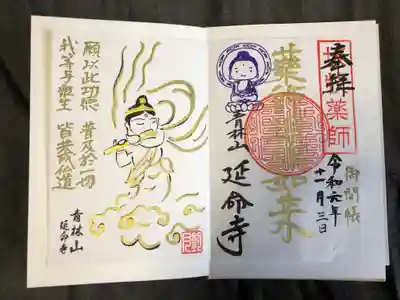 奉拝
薬師
御開帳
令和元年
十一月三日
如来
青林山 延命寺
願以此功徳 普及於一切
我等与衆生 皆共成仏道
青林山
延命寺